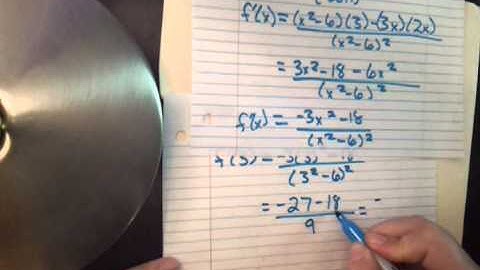 f'(x) = (x²-6)(3) - (3x)(2x)
(x²-6)²
= 3x² - 18 - 6x²
(x²-6)²
f'(x) = -3x² - 18
(x²-6)²
(3²-6)²
= -27 - 18 = -
9